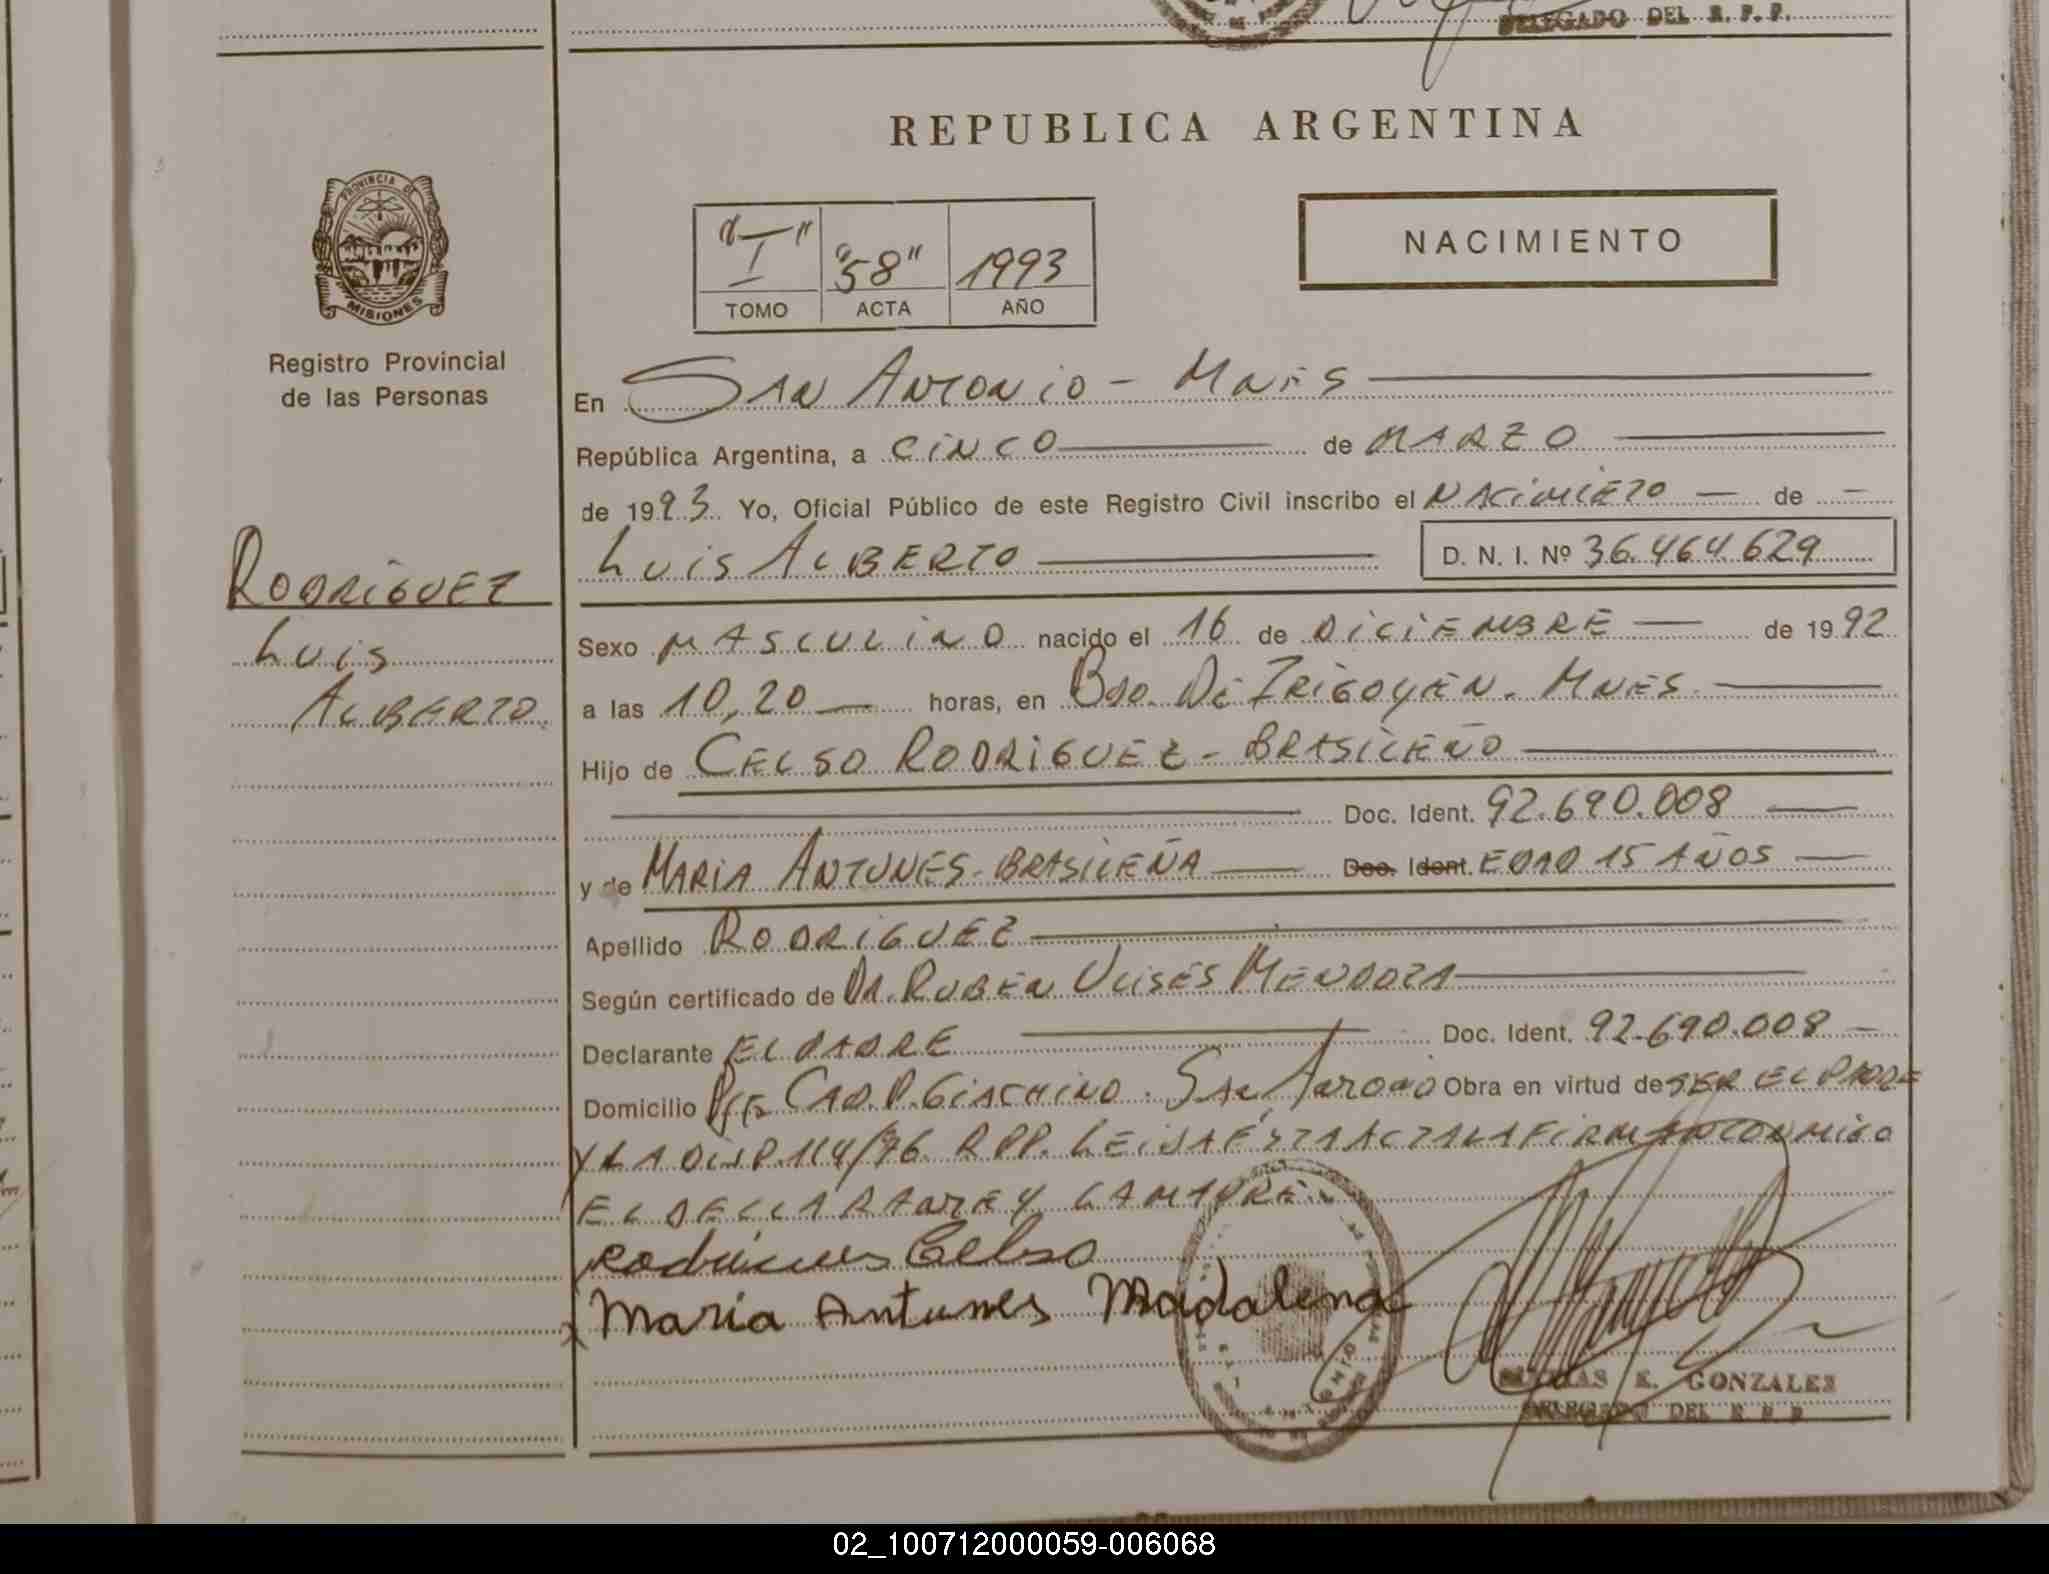 DELEGADO DEL R. P. P.
REPUBLICA ARGENTINA
PROVINCIA DE
MISIONES
Registro Provincial
de las Personas
"I" "58" 1993
TOMO ACTA AÑO
NACIMIENTO
En SAN ANTONIO - MNES
República Argentina, a CINCO de MARZO
de 1993 Yo, Oficial Público de este Registro Civil inscribo el NACIMIETO — de —
LUIS ALBERTO D. N. I. Nº 36.464.629
RODRIGUEZ
LUIS
ALBERTO
Sexo MASCULINO nacido el 16 de DICIEMBRE — de 1992
a las 10,20 — horas, en BDO. DE IRIGOYEN. MNES.
Hijo de CELSO RODRIGUEZ - BRASILEÑO
Doc. Ident. 92.690.008
y de MARIA ANTUNES - BRASILEÑA Doc. Ident. EDAD 15 AÑOS
Apellido RODRIGUEZ
Según certificado de DR. RUBEN ULISES MENDOZA
Declarante EL PADRE Doc. Ident. 92.690.008
Domicilio CAP. P. GIACHINO. SAN ANTONIO Obra en virtud de SER EL PADRE
Y LA DISP. 114/76 RPP. LEIDA ÉSTA ACTA LA FIRMAN CONMIGO
EL DECLARANTE Y LA MADRE
Rodrigues Celso
x Maria Antunes Madalena
E. GONZALES
DELEGADO DEL R P P
02_100712000059-006068